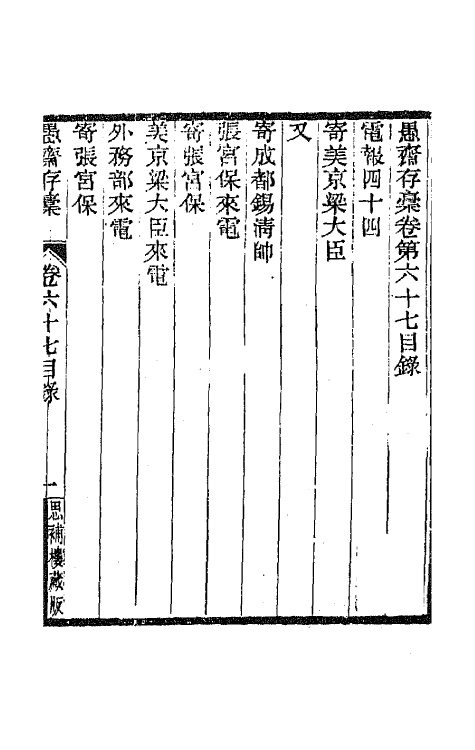 愚齋存稾卷第六十七目錄
電報四十四
寄美京梁大臣
又
寄成都錫清帥
張宮保來電
寄張宮保
美京梁大臣來電
外務部來電
寄張宮保
愚齋存稾 卷六十七目錄 一 思補樓藏版